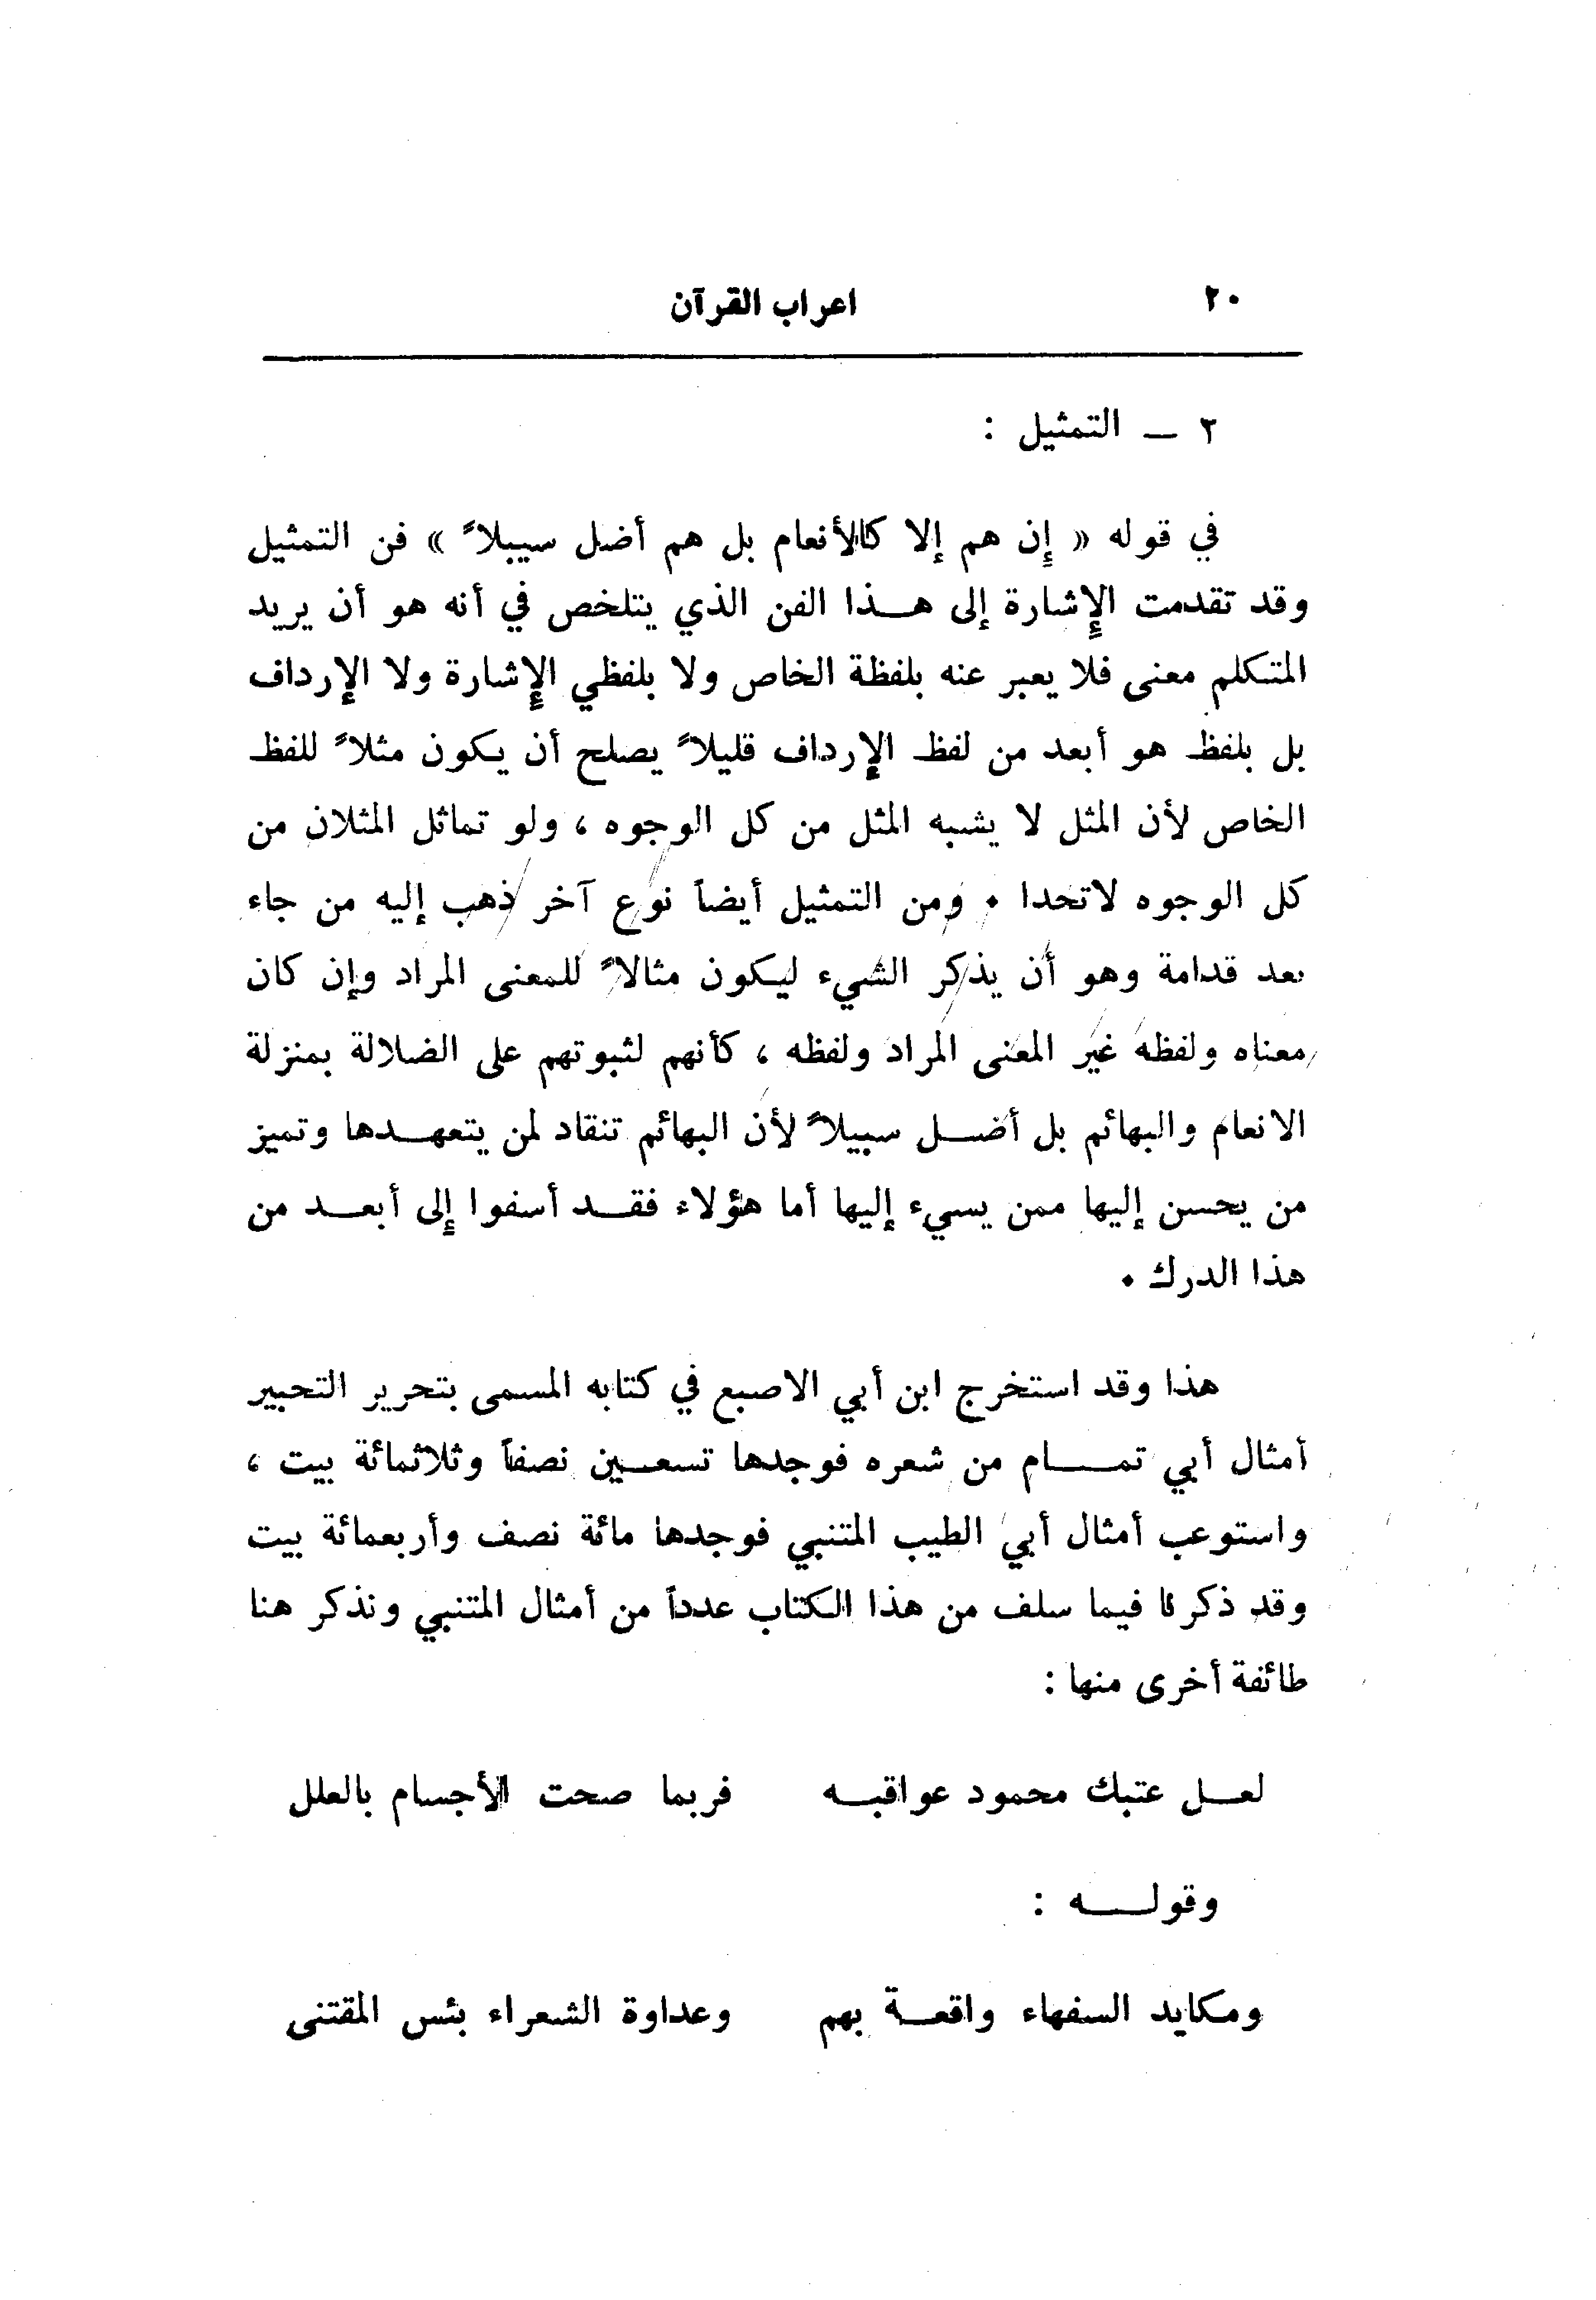 ٢٠ اعراب القرآن
٢ ــ التمثيل :
في قوله « إِن هم إلا كالأنعام بل هم أضل سبيلاً » فن التمثيل
وقد تقدمت الإِشارة إلى هــذا الفن الذي يتلخص في أنه هو أن يريد
المتكلم معنى فلا يعبر عنه بلفظة الخاص ولا بلفظي الإِشارة ولا الإِرداف
بل بلفظ هو أبعد من لفظ الإِرداف قليلاً يصلح أن يكون مثلاً للفظ
الخاص لأن المثل لا يشبه المثل من كل الوجوه ، ولو تماثل المثلان من
كل الوجوه لاتحدا . ومن التمثيل أيضاً نوع آخر ذهب إليه من جاء
بعد قدامة وهو أن يذكر الشيء ليكون مثالاً للمعنى المراد وإن كان
معناه ولفظه غير المعنى المراد ولفظه ، كأنهم لثبوتهم على الضلالة بمنزلة
الانعام والبهائم بل أضــل سبيلاً لأن البهائم تنقاد لمن يتعهــدها وتميز
من يحسن إليها ممن يسيء إليها أما هؤلاء فقــد أسفوا إلى أبعــد من
هذا الدرك .
هذا وقد استخرج ابن أبي الاصبع في كتابه المسمى بتحرير التحبير
أمثال أبي تمـــام من شعره فوجدها تسعــين نصفاً وثلاثمائة بيت ،
واستوعب أمثال أبي الطيب المتنبي فوجدها مائة نصف وأربعمائة بيت
وقد ذكرنا فيما سلف من هذا الكتاب عدداً من أمثال المتنبي ونذكر هنا
طائفة أخرى منها :
لعــل عتبك محمود عواقبــه فربما صحت الأجسام بالعلل
وقولـــه :
ومكايد السفهاء واقعــة بهم وعداوة الشعراء بئس المقتنى